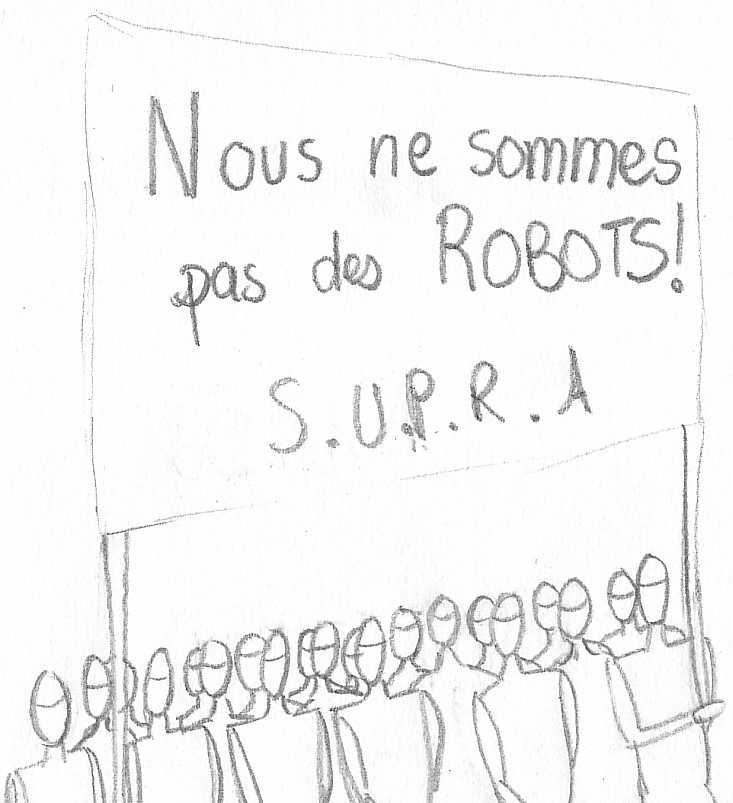 Nous ne sommes
pas des ROBOTS!
S.U.P.R.A